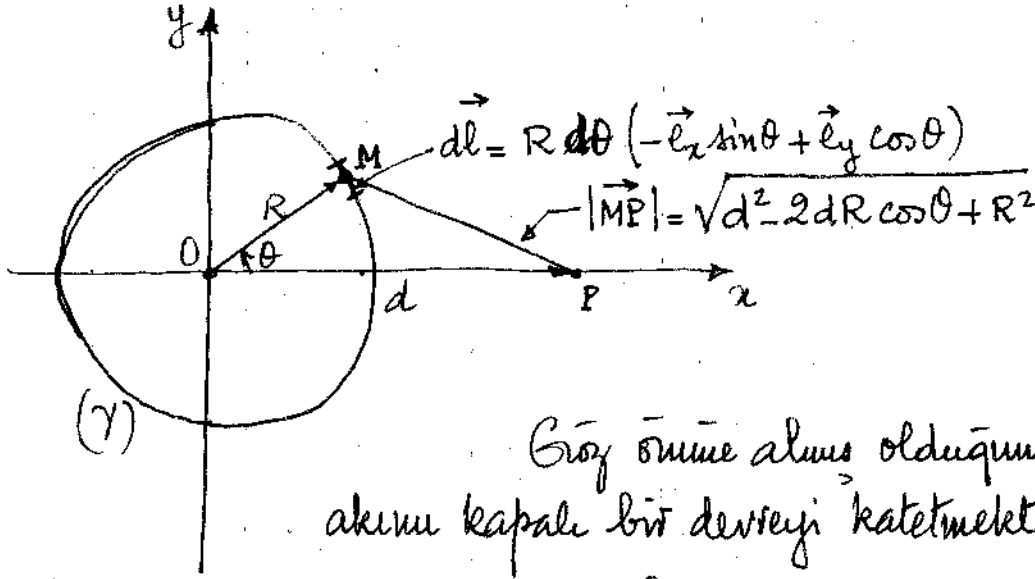 y
dl⃗ = R dθ (-e⃗ₓ sinθ + e⃗ᵧ cosθ)
M
|MP⃗| = √(d² - 2dR cosθ + R²)
R
O θ
d P x
(γ)
Göz önüne almış olduğum
akımı kapalı bir devreyi katetmekt